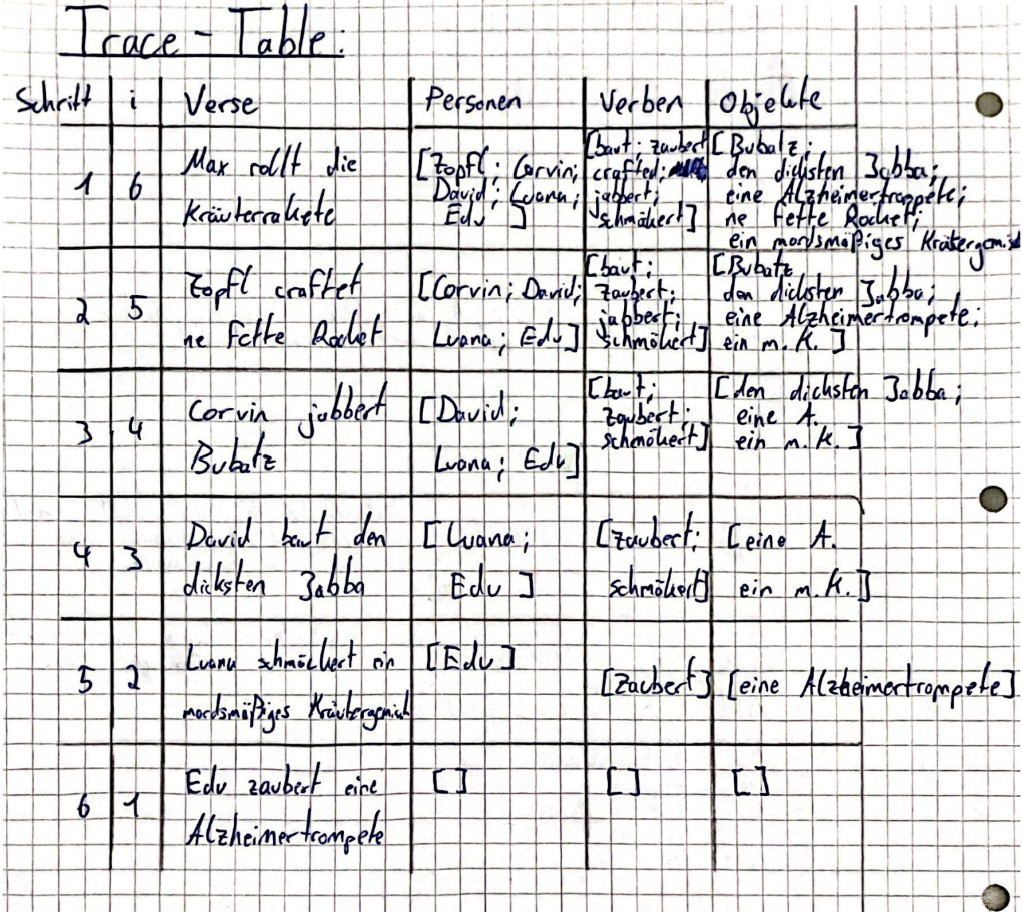 Trace - Table:
Schritt i Verse Personen Verben Objekte
1 6 Max rollt die Kräuterrakete [Zopfl; Corvin; David; Luana; Edu] [baut; zaubert crafted; jabbert; schmökert] [Bubatz; den dicksten Jabba; eine Alzheimertrompete; ne fette Rocket; ein mordsmäßiges Kräutergemisch
2 5 Zopfl craftet ne fette Rocket [Corvin; David; Luana; Edu] [baut; zaubert; jabbert; schmökert] [Bubatz den dicksten Jabba; eine Alzheimertrompete; ein m. K.]
3 4 Corvin jabbert Bubatz [David; Luana; Edu] [baut; zaubert; schmökert] [den dicksten Jabba; eine A. ein m. K.]
4 3 David baut den dicksten Jabba [Luana; Edu] [zaubert; schmökert] [eine A. ein m. K.]
5 2 Luana schmökert ein mordsmäßiges Kräutergemisch [Edu] [zaubert] [eine Alzheimertrompete]
6 1 Edu zaubert eine Alzheimertrompete [] [] []